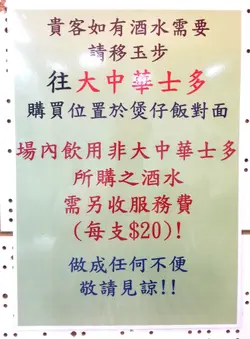 貴客如有酒水需要
請移玉步
往大中華士多
購買位置於煲仔飯對面
場內飲用非大中華士多
所購之酒水
需另收服務費
(每支$20)!
做成任何不便
敬請見諒!!